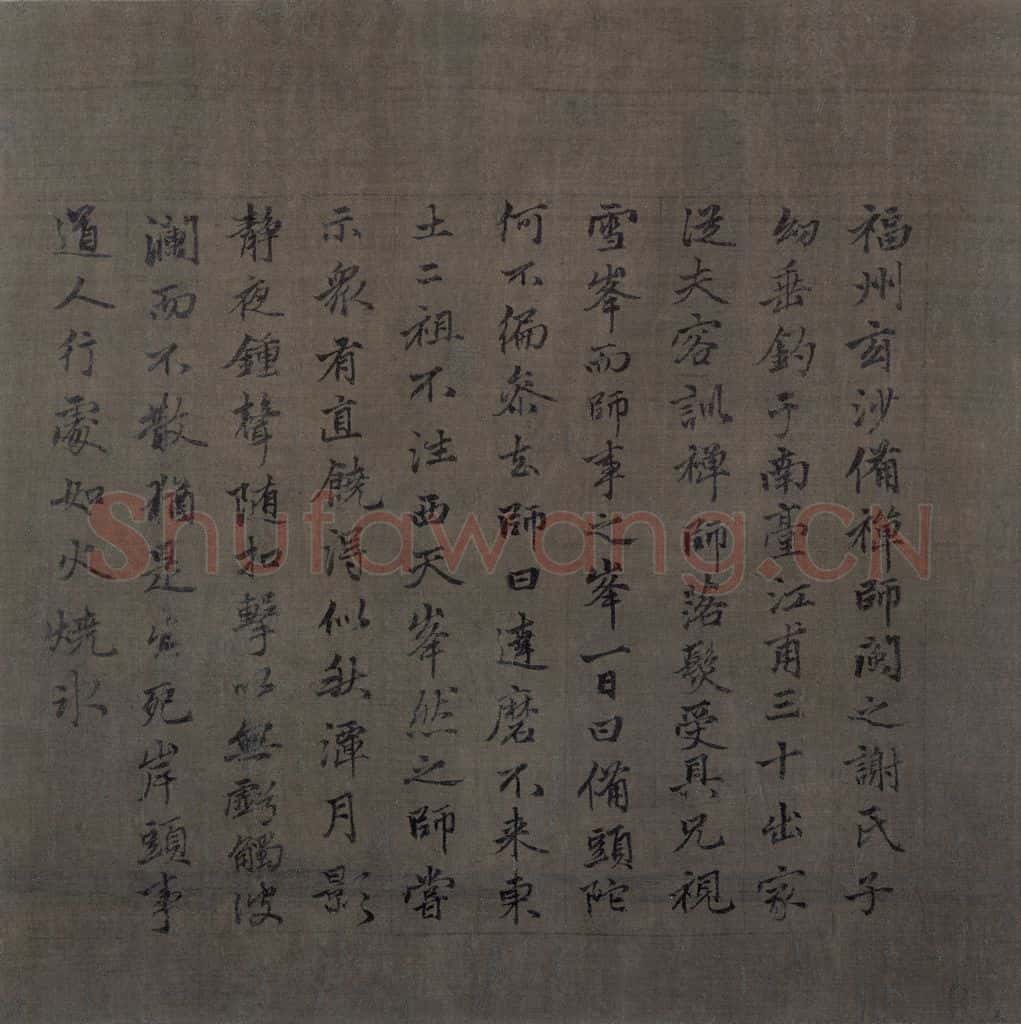 福州玄沙備禪師閩之謝氏子
幼垂釣于南臺江甫三十出家
從夫容訓禪師落髮受具兄視
雪峯而師事之峯一日曰備頭陀
何不徧叅去師曰達磨不来東
土二祖不往西天峯然之師嘗
示眾有直饒得似秋潭月影
静夜鍾聲随扣擊以無虧觸波
瀾而不散猶是生死岸頭事
道人行處如火燒氷
Shufawang.CN